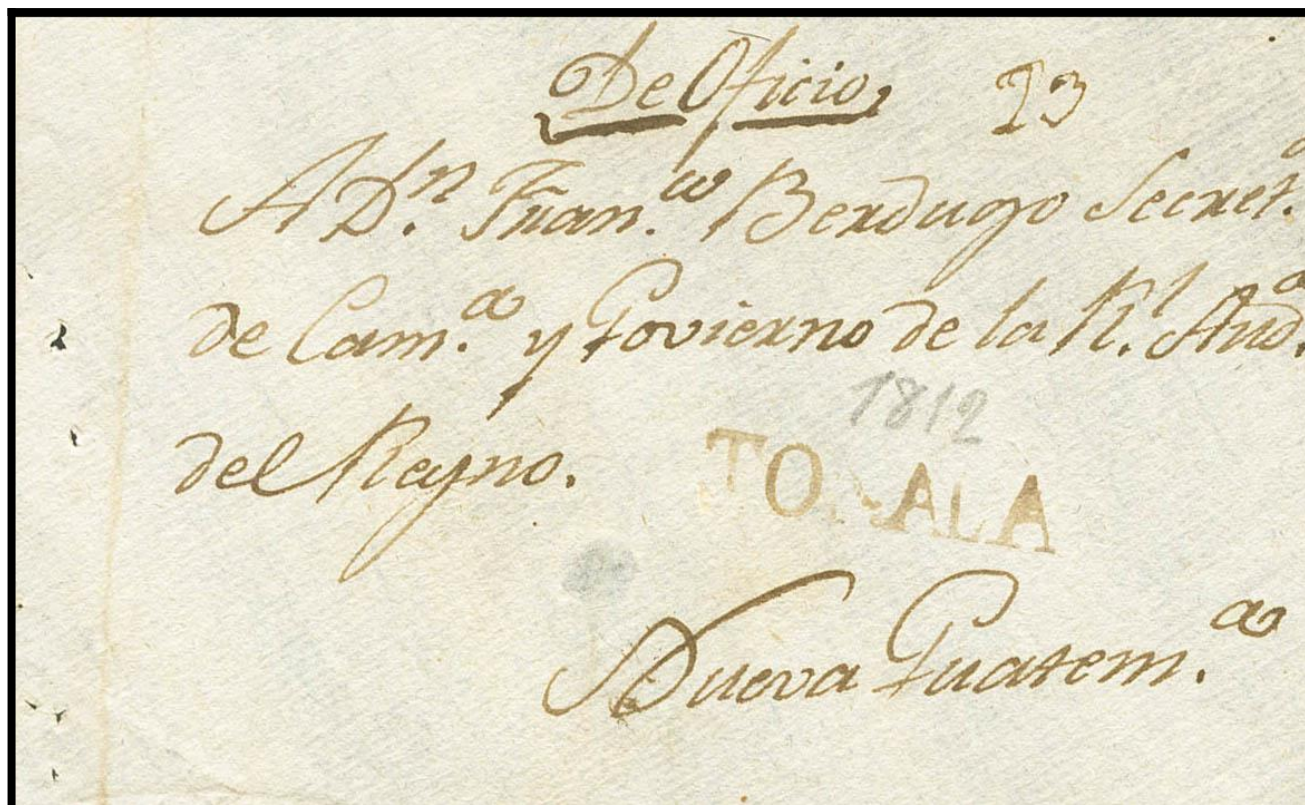 De Oficio 23
A Dn. Franco. Berdugo Secret.
de Cama. y Govierno de la Rl. Auda.
del Reyno.
1812
TONALA
Nueva Guatema.